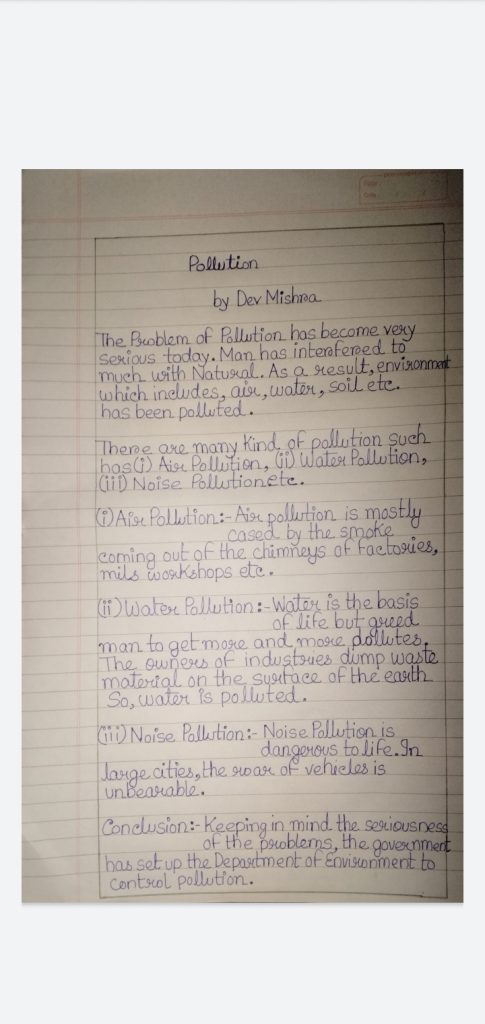 Pollution
by Dev Mishra
The Problem of Pollution has become very
serious today. Man has interfered to
much with Natural. As a result, environment
which includes, air, water, soil etc.
has been polluted.
There are many Kind of pollution such
has (i) Air Pollution, (ii) Water Pollution,
(iii) Noise Pollution etc.
(i) Air Pollution:- Air pollution is mostly
cased by the smoke
coming out of the chimneys of factories,
mils workshops etc.
(ii) Water Pollution:- Water is the basis
of life but greed
man to get more and more pollutes.
The owners of industries dump waste
material on the surface of the earth
So, water is polluted.
(iii) Noise Pollution:- Noise Pollution is
dangerous to life. In
large cities, the roar of vehicles is
unbearable.
Conclusion:- Keeping in mind the seriousness
of the problems, the government
has set up the Department of Environment to
control pollution.